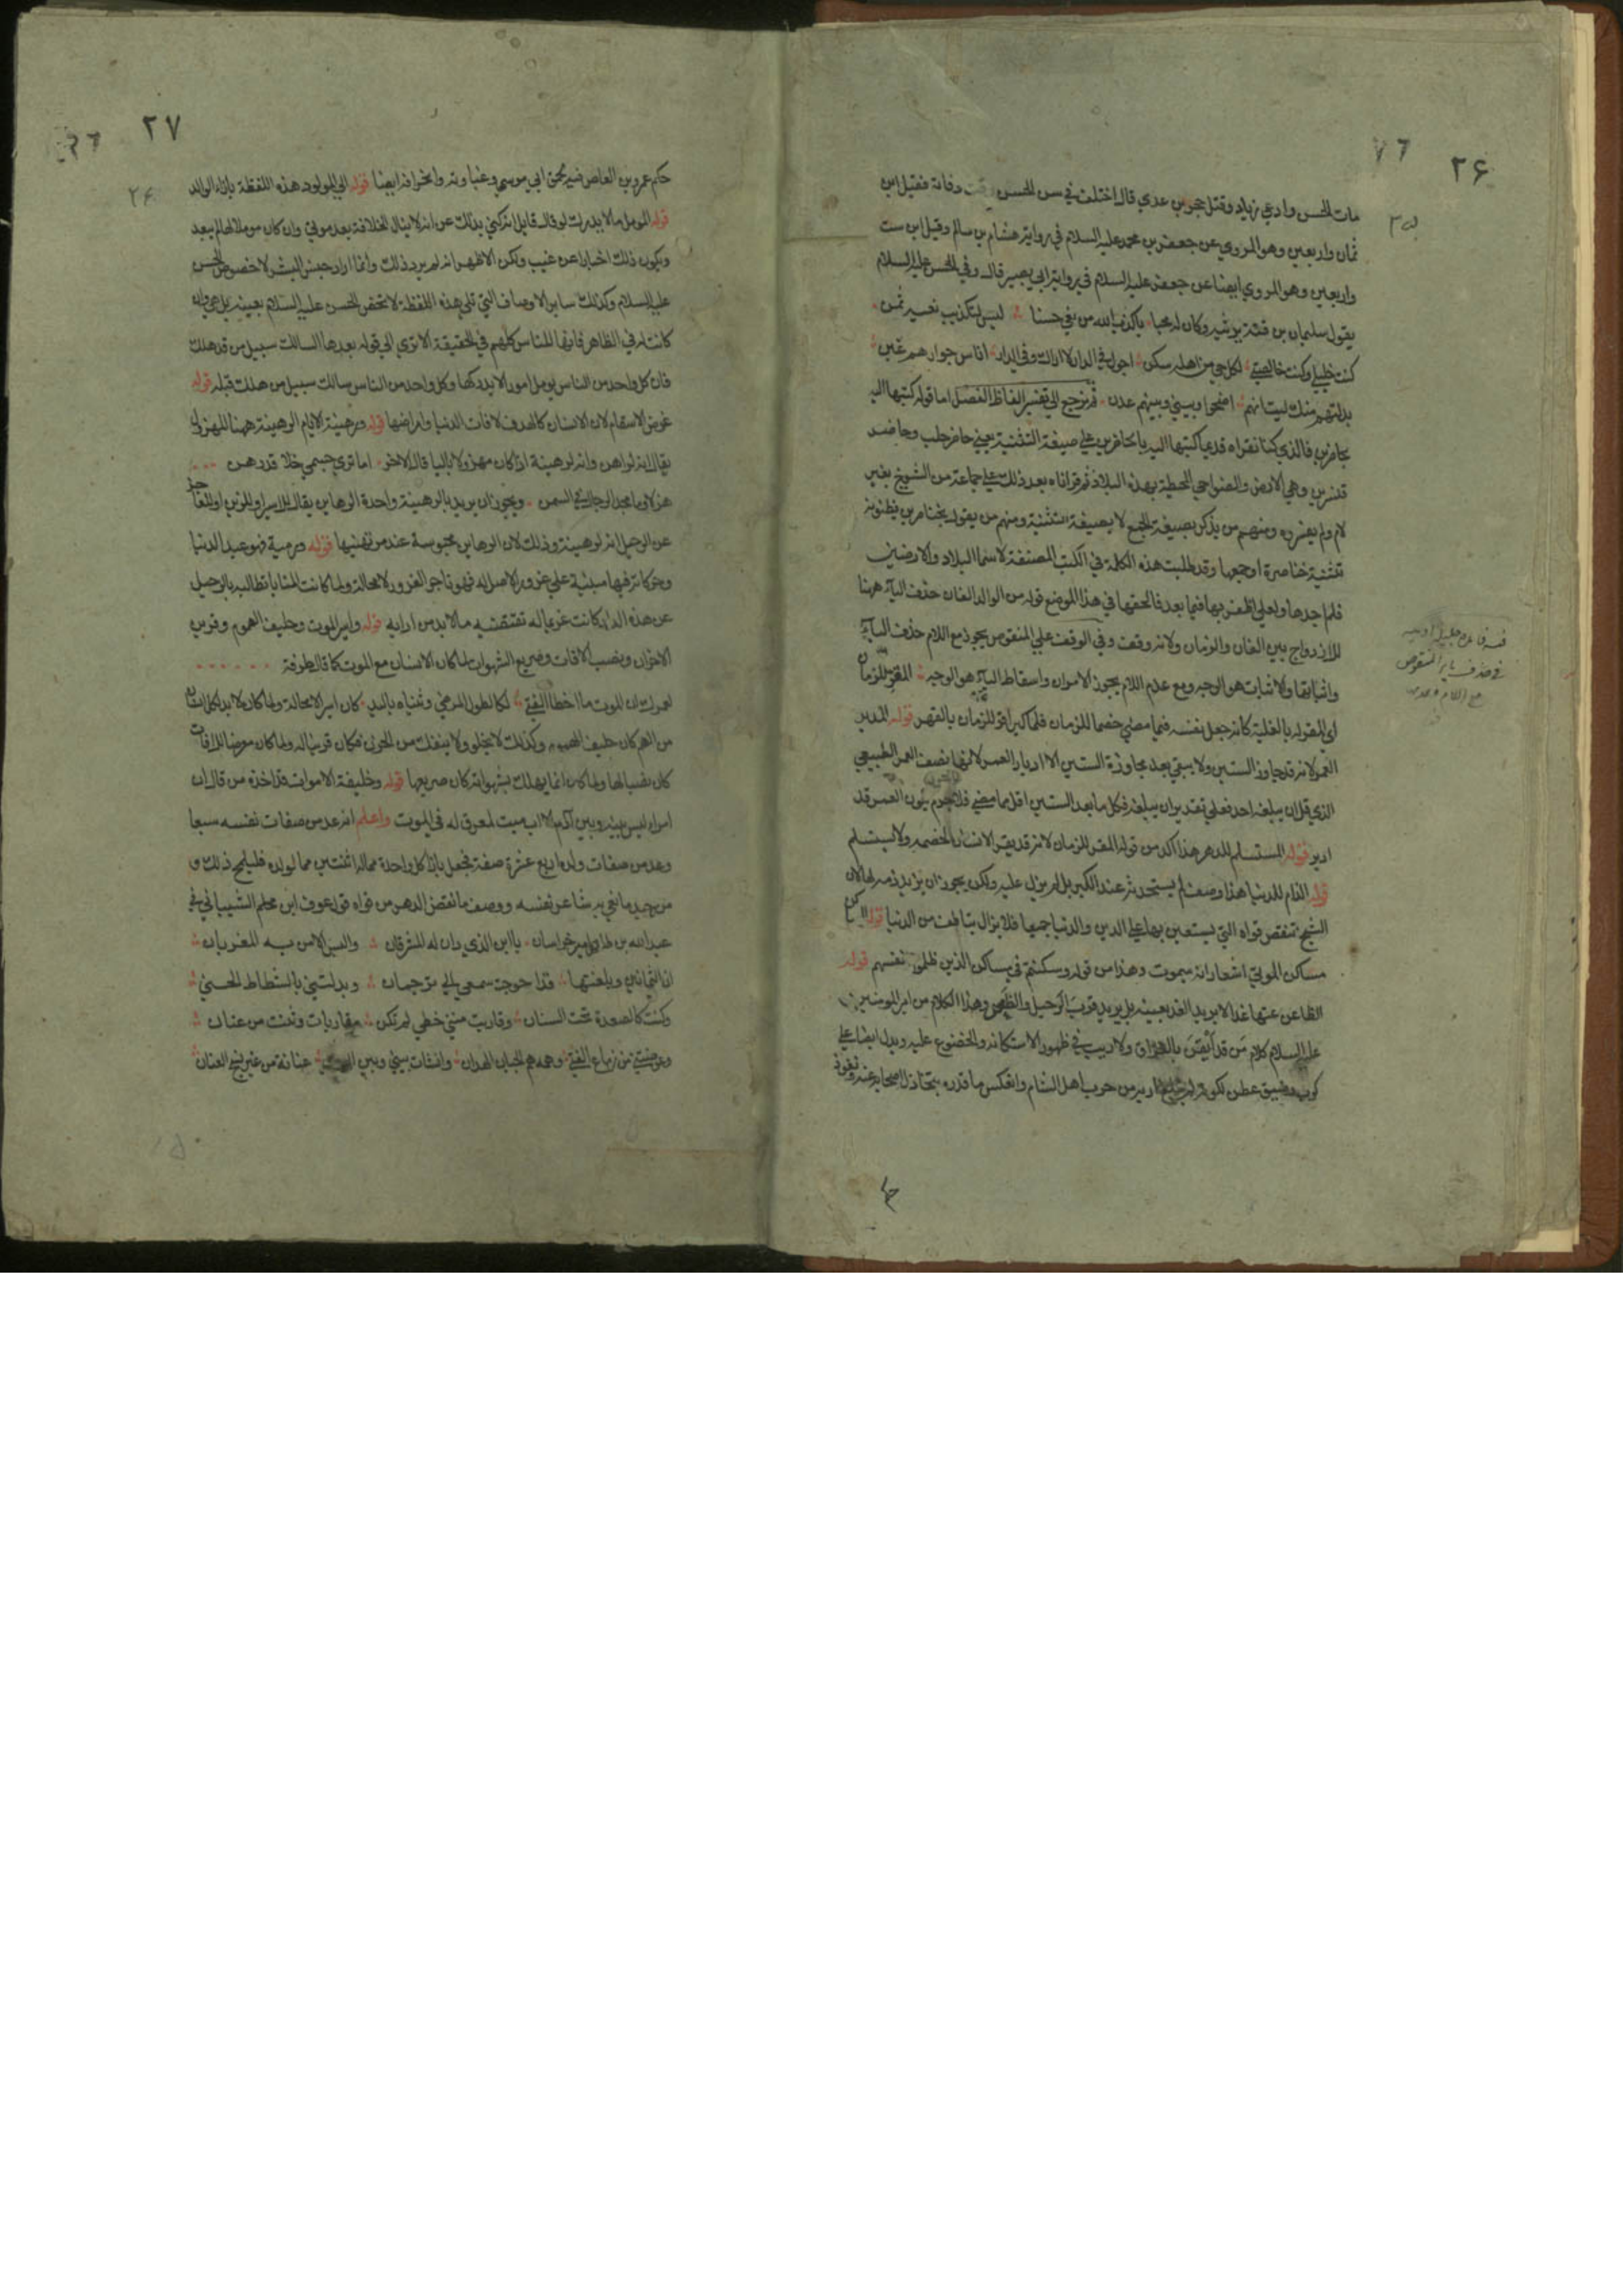 ٢۶
مات الحسن وادعى زياد وقتل حجر بن عدي قال اختلف في سن الحسن وقت وفاته فقيل ابن
ثمان واربعين وهو المروي عن جعفر بن محمد عليه السلام في رواية هشام بن سالم وقيل ابن ست
واربعين وهو المروي ايضا عن جعفر عليه السلام في رواية ابي بصير قال وفي الحسن عليه السلام
يقول سليمان بن قتة يرثيه وكان له محبا ياكذب الله من نعى حسنا ليس لتكذيب نعيه ثمن
كنت خليلي وكنت خالصتي لكل حي من اهله سكن اجول في الدار لا اراك وفي الدار اناس جوارهم غبن
بدلتهم منك ليت انهم اضحوا وبيني وبينهم عدن ثم نرجع الى تفسير الفاظ الفصل اما قوله كتبها اليه
بحاضرين فالذي كنا نقراه قديما كتبها اليه بالحاضرين على صيغة التثنية يعني حاضر حلب وحاضر
قنسرين وهي الارض والضواحي المحيطة بهذه البلاد ثم قراناه بعد ذلك على جماعة من الشيوخ بغير
لام ولم يفسروه ومنهم من يذكر بصيغة الجمع لا بصيغة التثنية ومنهم من يقول بخناصرين يظنونه
تثنية خناصرة او جمعها وقد طلبت هذه الكلمة في الكتب المصنفة لاسما البلاد والارضين
فلم اجدها ولعلي اظفر بها فيما بعد فالحقها في هذا الموضع قوله من الوالد الفان حذف الياء ههنا
للازدواج بين الفان والزمان ولانه وقف وفي الوقف على المنقوص يجوز مع اللام حذف الياء
واثباتها والاثبات هو الوجه ومع عدم اللام يجوز الامران واسقاط الياء هو الوجه المقر للزمان
اي المقر له بالغلبة كانه جعل نفسه فيما مضى خصما للزمان فلما كبر اقر للزمان بالقهر قوله المدبر
العمر لانه قد جاوز الستين ولا يبقى بعد مجاوزة الستين الا ادبار العمر لانها نصف العمر الطبيعي
الذي قل ان يبلغه احد فعلى تقدير ان يبلغه فكل ما بعد الستين اقل مما مضى فلاجرم يكون العمر قد
ادبر قوله المستسلم للدهر هذا اكد من قوله المقر للزمان لانه قد يقر الانسان لخصمه ولا يستسلم
قوله الذام للدنيا هذا وصف لم يستحدثه عند الكبر بل لم يزل عليه ولكن يجوز ان يزيد ذمه لها لان
الشيخ تنقص قواه التي يستعين بها على الدين والدنيا جميعا فلا يزال يتافف من الدنيا قوله الساكن
مساكن الموتى اشعار انه سيموت وهذا من قوله وسكنتم في مساكن الذين ظلموا انفسهم قوله
الظاعن عنها غدا لا يريد الغد بعينه بل يريد قرب الرحيل والظعن وهذا الكلام من امير المومنين
عليه السلام كلام من قد ايقن بالفراق ولا ريب في ظهور الاستكانة والخضوع عليه ويدل ايضا على
كرب وضيق عطن لكونه لم يبلغ اربه من حرب اهل الشام وانعكس ما قدره بتخاذل اصحابه عنه ونفوذ
٢٧
حكم عمرو بن العاص فيه لحمق ابي موسى وغباوته وانحرافه ايضا قوله الى المولود هذه اللفظة بازاء الوالد
قوله المومل ما لا يدرك لو قال قايل انه كنى بذلك عن انه لا ينال الخلافة بعد موتي وان كان موملا لها لم يبعد
ويكون ذلك اخبارا عن غيب ولكن الاظهر انه لم يرد ذلك وانما اراد جنس البشر لا خصوص الحسن
عليه السلام وكذلك ساير الاوصاف التي تلي هذه اللفظة لا تخص الحسن عليه السلام بعينه بل هي وان
كانت له في الظاهر فانها للناس كلهم في الحقيقة الا ترى الى قوله بعدها السالك سبيل من قد هلك
فان كل واحد من الناس يومل امورا لا يدركها وكل واحد من الناس سالك سبيل من هلك قبله قوله
غرض الاسقام لان الانسان كالهدف لافات الدنيا وامراضها قوله ورهينة الايام الرهينة ههنا المهزول
يقال انه لراهن وانه لرهينة اذا كان مهزولا باليا قال الاخر اما تري جسمي خلا قد رهن
هزلا وما مجد الرجال في السمن ويجوز ان يريد بالرهينة واحدة الرهاين يقال للاسير او للزمن او للعاجز
عن الرحيل انه لرهينة وذلك لان الرهاين محبوسة عند مرتهنيها قوله ورمية فهو عبد الدنيا
وحركاته فيها مبنية على غرور لا اصل له فهو تاجر الغرور لا محالة ولما كانت المنايا تطالبه بالرحيل
عن هذه الدار كانت غريما له تقتضيه ما لا بد من ادايه قوله واسير الموت وحليف الهموم وقرين
الاحزان ونصب الافات وصريع الشهوات لما كان الانسان مع الموت كما قال طرفة
لعمرك ان الموت ما اخطا الفتى لكالطول المرخى وثنياه باليد كان اسيرا لا محالة ولما كان لا بد لكل انسان
من الهم كان حليف الهموم وكذلك لا يخلو ولا ينفك من الحزن فكان قرينا له ولما كان معرضا للافات
كان نصبا لها ولما كان انما يهلك بشهواته كان صريعها قوله وخليفة الاموات قد اخذه من قال ان
امرا ليس بينه وبين آدم الا اب ميت لمعرق له في الموت واعلم انه عد من صفات نفسه سبعا
وعد من صفات ولده اربع عشرة صفة فجعل بازا كل واحدة مما له اثنتين مما لولده فليلمح ذلك و
من جيد ما نعى به شاعر نفسه ووصف ما نقص الدهر من قواه قول عوف ابن محلم الشيباني في
عبد الله بن طاهر امير خراسان يا ابن الذي دان له المشرقان والبس الامن به المغربان
ان الثمانين وبلغتها قد احوجت سمعي الى ترجمان وبدلتني بالشطاط الحنى
وكنت كالصعدة تحت السنان وقاربت مني خطى لم تكن مقاربات وثنت من عنان
وعوضتني من زماع الفتى وهمه هم الجبان الهدان وانشات بيني وبين عنانة من غير نسج العنان